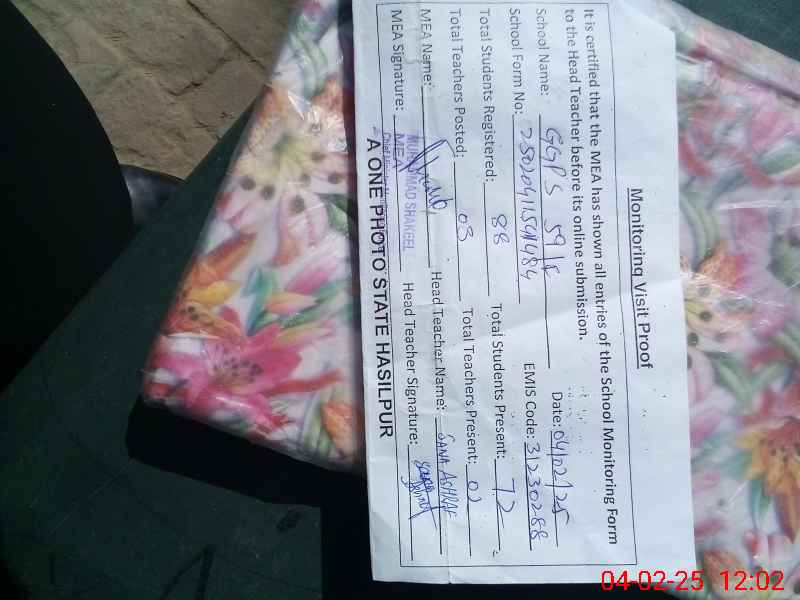 Monitoring Visit Proof
It is certified that the MEA has shown all entries of the School Monitoring Form
to the Head Teacher before its online submission.
Date: 04/02/25
School Name: GGPS 59/F
School Form No: EMIS Code: 31230288
Total Students Registered: 88 Total Students Present: 72
Total Teachers Posted: 03 Total Teachers Present: 02
MEA Name: Head Teacher Name: SANA ASHRAF
MEA Signature: Head Teacher Signature:
MUHAMMAD SHAKEEL
MEA
A ONE PHOTO STATE HASILPUR
04-02-25 12:02